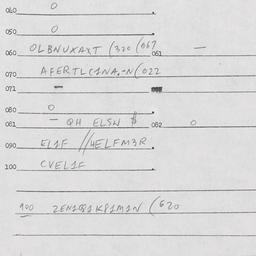 040 O
050 O
060 OLBNUXAXT (320 (067
061 —
070 AFERTLC1NA.-N(022
071 -
080 O
081 - QH ELSW $ 082 O
090 EL1F //4ELFM3R
100 CVEL1F
100 2EN1Q1KP1M1N (620